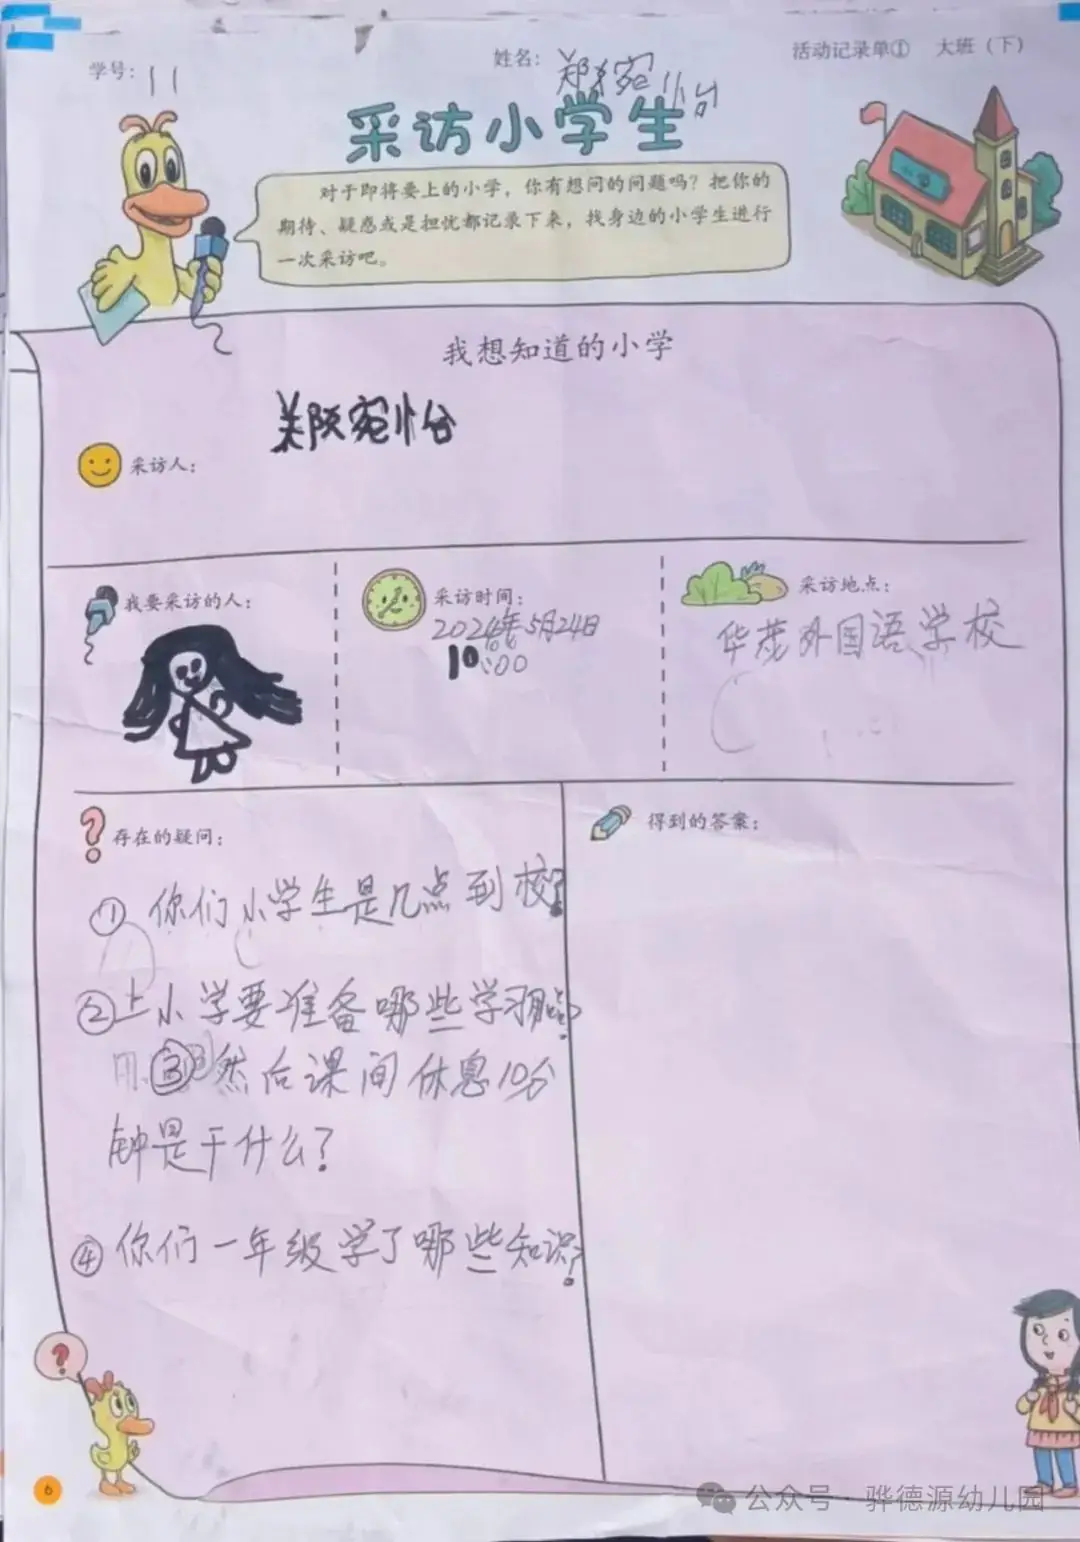 学号：11
姓名：郑宛怡
活动记录单① 大班（下）
采访小学生
对于即将要上的小学，你有想问的问题吗？把你的
期待、疑惑或是担忧都记录下来，找身边的小学生进行
一次采访吧。
小学
我想知道的小学
郑宛怡
采访人：
我要采访的人：
采访时间：
2024年5月24日
10:00
采访地点：
华茂外国语学校
存在的疑问：
①你们小学生是几点到校？
②上小学要准备哪些学习用品？
③然后课间休息10分
钟是干什么？
④你们一年级学了哪些知识？
得到的答案：
?
6
公众号·骅德源幼儿园